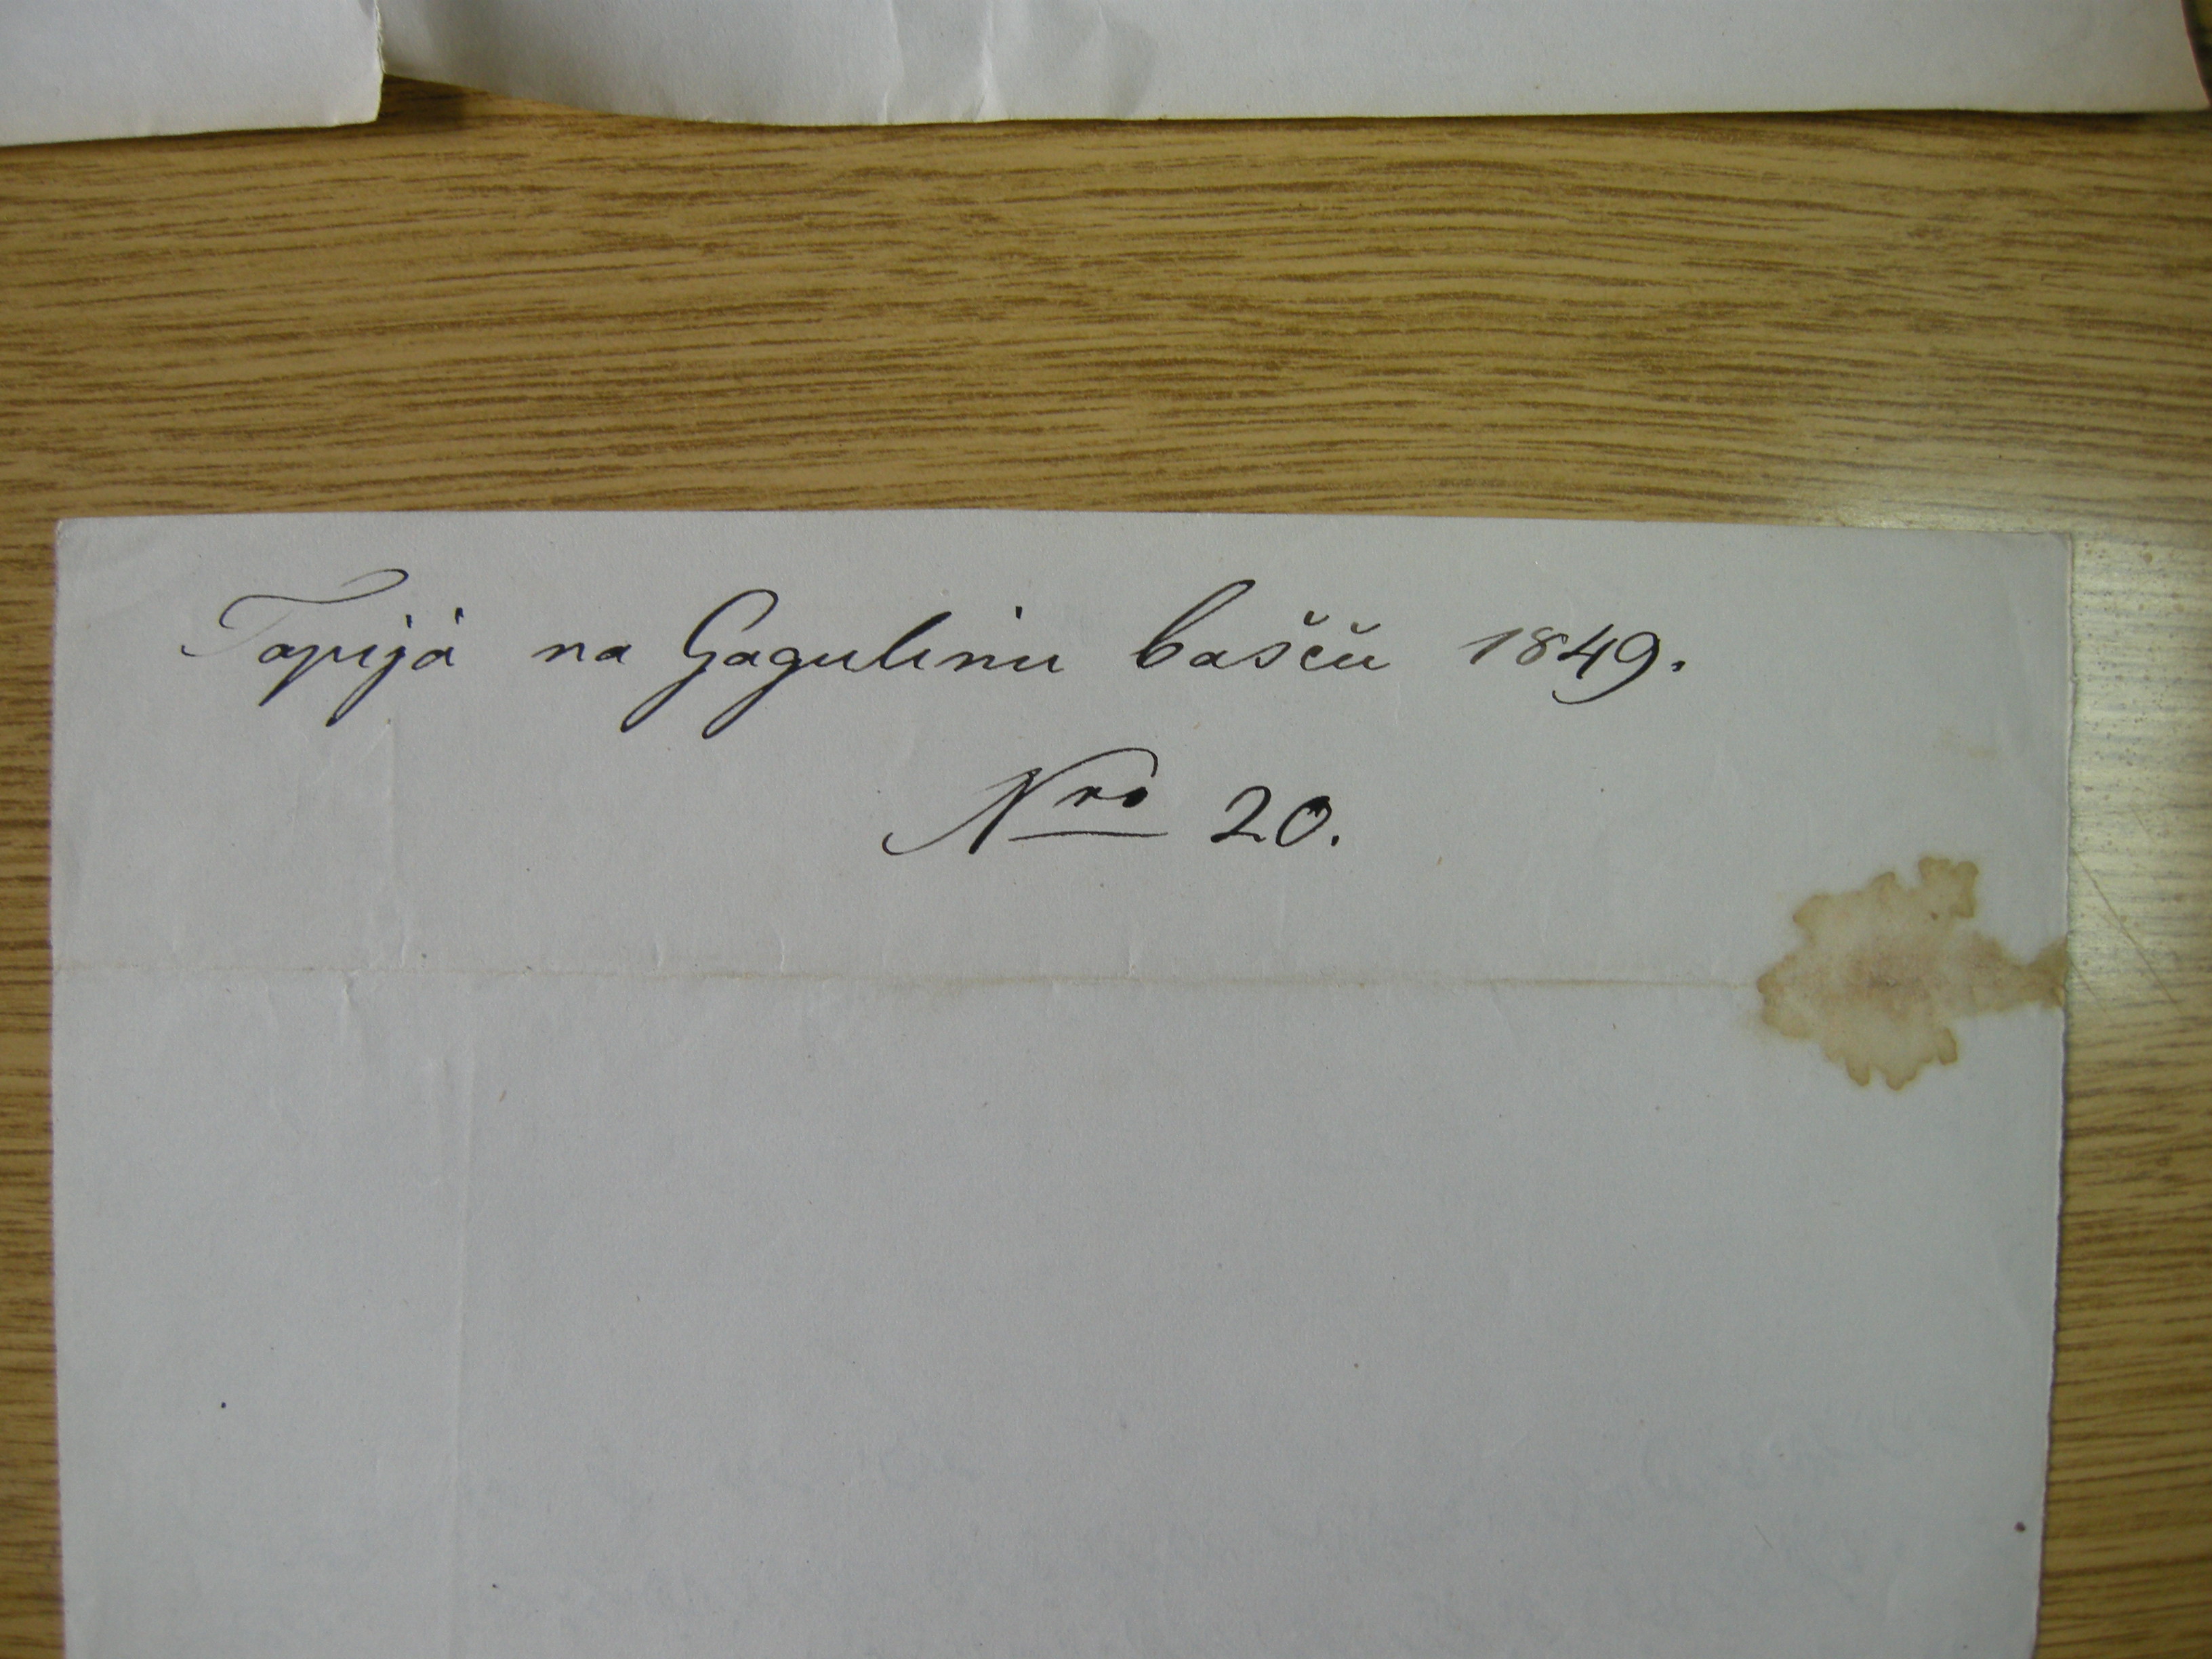 Tapija na Gagulinu bašču 1849.
Nro 20.